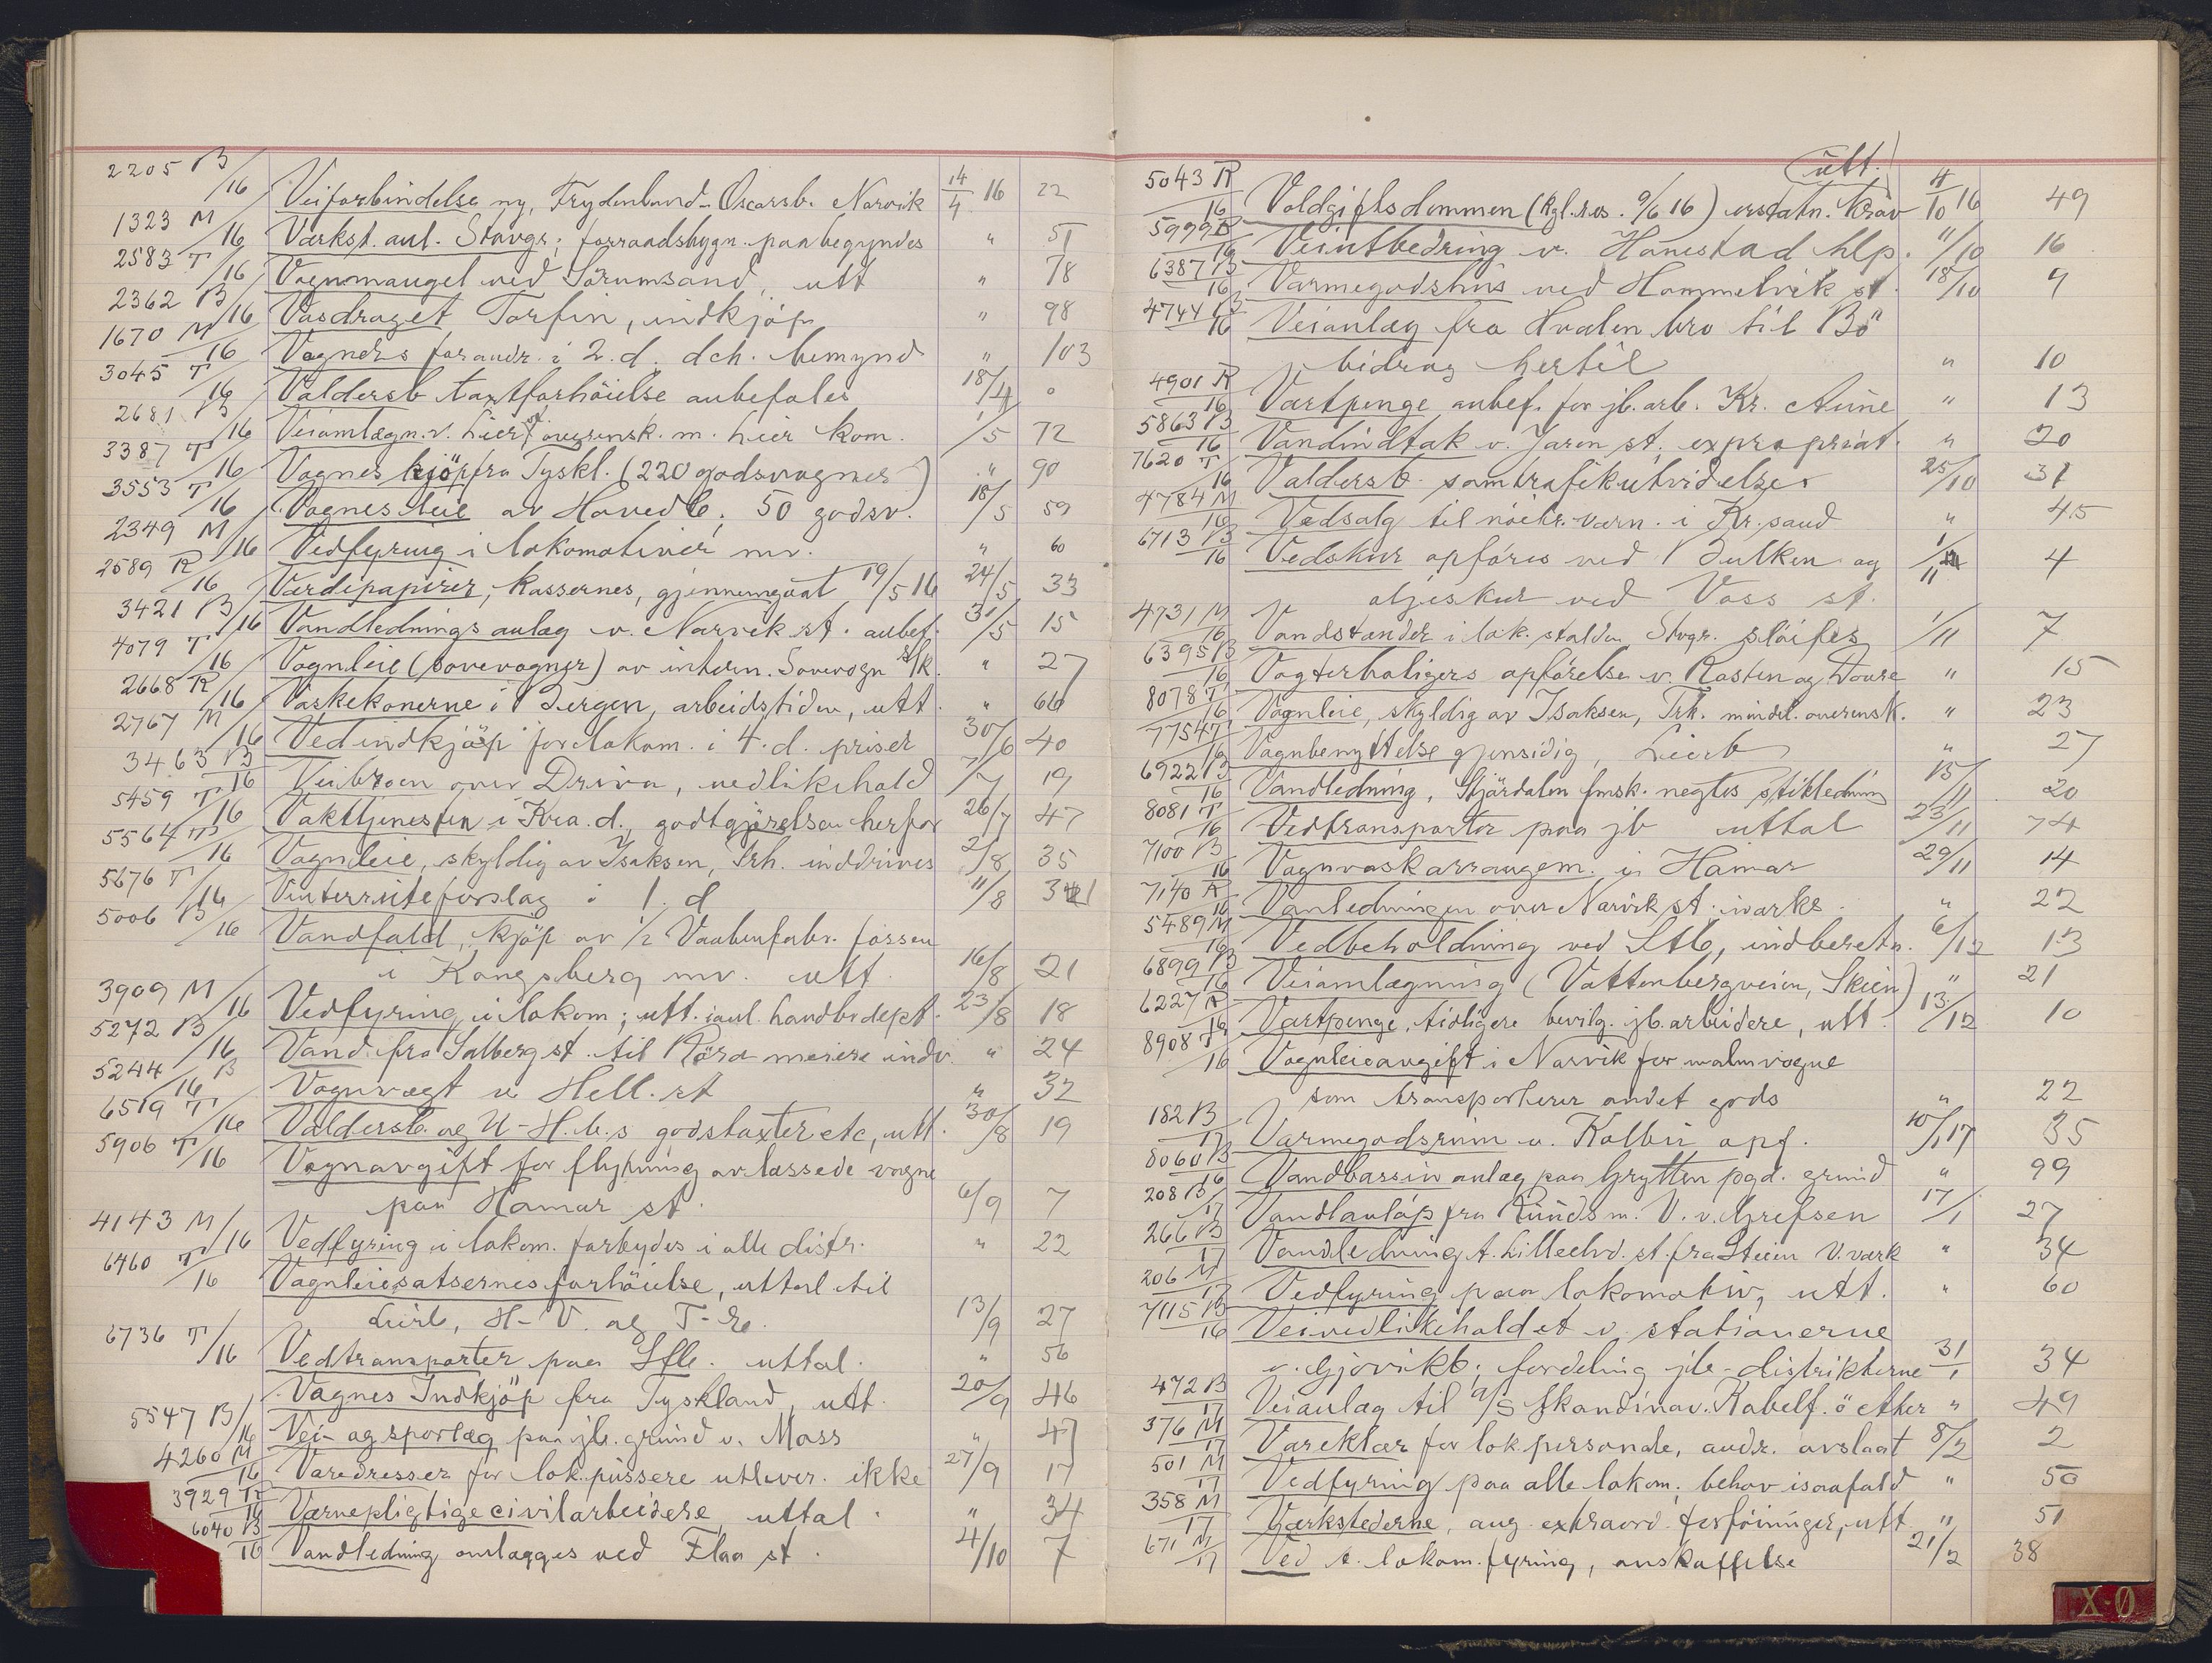 2205 B/16 Veiforbindelse ny, Frydenlund-Oscarsb. Narvik 14/4 16 22
1323 M/16 Værkst. anl. Stavgr; forraadsbygn. paabegyndes " 51
2583 T/16 Vognmangel ved Sörumsand, utt " 78
2362 B/16 Vasdraget Torfin, indkjöp " 98
1670 M/16 Vogners forandr. i 2. d. dch. bemynd " 103
3045 T/16 Valdersb taxtforhöielse anbefales 18/4 0
2681 B/16 Veiomlægn. v. Lier st overensk. m. Lier kom. 1/5 72
3387 T/16 Vognes kjöp fra Tyskl. (220 godsvogner) " 90
3553 T/16 Vognes leie av Hovedb; 50 godsv. 18/5 59
2349 M/16 Vedfyring i lokomotiver mv. " 60
2589 R/16 Værdipapirer, kassernes, gjennemgaat 19/5 16 24/5 33
3421 B/16 Vandlednings anlæg v. Narvik st. anbef. 31/5 15
4079 T/16 Vognleie (sovevogner) av intern. Sovevogn s/k. " 27
2668 R/16 Vaskekonerne i Bergen, arbeidstiden, utt. " 66
2767 M/16 Vedindkjöp for lokom. i 4. d. priser 30/6 40
3463 B/16 Veibroen over Driva, vedlikehold 7/7 19
5459 T/16 Vakttjenesten i Kra. d., godtgjörelsen herfor 26/7 47
5564 T/16 Vognleie, skyldig av Isaksen, Trh. inddrives 2/8 35
5676 T/16 Vinterruteforslag i 1. d 11/8 341
5006 B/16 Vandfald, kjöp av 1/2 Vaabenfabr. fossen
i Kongsberg mv. utt. 16/8 21
3909 M/16 Vedfyring i lokom; utt. i anl. handb. dept. 23/8 18
5272 B/16 Vand fra Salberg st. til Röra meieri indv. " 24
5244 B/16 Vognvægt v. Hell. st " 32
6519 T/16 Valdersb. og U-H.b.s godstaxter etc, utt. 30/8 19
5906 T/16 Vognavgift for flytning av læssede vogne
paa Hamar st. 6/9 7
4143 M/16 Vedfyring i lokom. forbydes i alle distr. " 22
6460 T/16 Vognleiesatsernes forhöielse, uttal til
Lierb, H-V. og T-R. 13/9 27
6736 T/16 Vedtransporter paa Sfb. uttal. " 56
Vognes Indkjöp fra Tyskland, utt. 20/9 46
5547 B/16 Vei- og sporlæg paa jb. grund v. Moss " 47
4260 M/16 Varedresser for lok.pussere utlever. ikke 27/9 17
3929 R/16 Værnepligtige civilarbeidere, uttal. " 34
6040 B/16 Vandledning omlægges ved Flaa st. 4/10 7
utt.
5043 R/16 Voldgiftsdommen (Kgl. res. 9/6 16) erstatn. krav 4/10 16 49
5999 B/16 Veiutbedring v. Hanestad hlp. 11/10 16
6387 B/16 Varmegodshus ved Hommelvik st. 18/10 9
4744 B/16 Veianlæg fra Hvalen bro til Bö
bidrag hertil " 10
4901 R/16 Vartpenge anbef. for jb. arb. Kr. Aune " 13
5863 B/16 Vandindtak v. Jaren st, expropriat. " 20
7620 T/16 Valdersb. samtrafikutvidelse 25/10 31
4784 M/16 Vedsalg til nöitr.værn. i Kr.sand " 45
6713 B/16 Vedskur opföres ved Bulken og 1/11 4
oljeskur ved Voss st.
4731 M/16 Vandstander i lok. stalden Stvgr. slöifes 1/11 7
6395 B/16 Vogterboligers opförelse v. Rasten og Dovre " 15
8078 T/16 Vognleie, skyldig av Isaksen, Trh. mindel. overensk. " 23
7754 T/16 Vognbenyttelse gjensidig, Lierb " 27
6922 B/16 Vandledning, Stjördalen fmsk. negtes stikledning 15/11 20
8081 T/16 Vedtransporter paa jb uttal 23/11 74
7100 B/16 Vognvaskarrangem. i Hamar 29/11 14
7140 R/16 Vanledningen over Narvik st. iværks. " 22
5489 M/16 Vedbeholdning ved Stb, indberetn. 6/12 13
6899 B/16 Veiomlægning (Vattenbergveien, Skien) " 21
6227 R/16 Vartpenge, tidligere bevilg. jb. arbeidere, utt. 13/12 10
8908 T/16 Vognleieavgift i Narvik for malmvogne
som transporterer andet gods " 22
182 B/17 Varmegodsrum v. Kolbu opf. 10/1 17 35
8060 B/16 Vandbassin anlæg paa Grytten pgd. grund " 99
208 B/17 Vandlauláp fra Runds m. V. v. Grefsen 17/1 27
266 B/17 Vandledning t. Lilleelvd. st. fra Steien V. værk " 34
206 M/17 Vedfyring paa lokomotiv, utt. " 60
7115 B/16 Veivedlikeholdet v. stationerne
v. Gjövikb; fordeling jb-distrikterne 31/1 34
472 B/17 Veianlæg til A/S Skandinav. Kabelf. ö etter " 49
376 M/17 Vareklær for lok.personale, andr. avslaat 8/2 2
501 M/17 Vedfyring paa alle lokom; behov isaafald " 50
358 M/17 Værkstederne, ang. extraord. forföininger, utt " 51
671 M/17 Ved t. lokom.fyring, anskaffelse 21/2 38
X-Ø